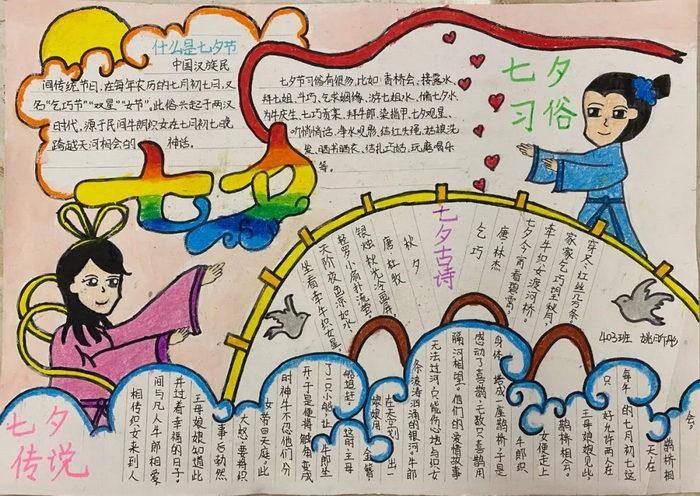 什么是七夕节
中国汉族民
间传统节日,在每年农历的七月初七间,又
名"乞巧节""双星""女节",此俗大起于两汉
时代,源于民间牛朗织女在七月初七晚
跨越天河相会的 神话。
七夕节习俗有很多,比如:香桥会、接露水、
拜七姐、斗巧、乞求姻缘、游七姐水、储七夕水、
为牛庆生、七巧贡案、拜牛郎、染指甲、七夕观星、
听悄悄话、争水观影、结红头绳、姑娘洗
发、晒书晒衣、结扎巧姑、玩磨喝乐
等。
七夕
习俗
七夕
七夕古诗
乞巧
唐·林杰
七夕今宵看碧霄,
牵牛织女渡河桥。
家家乞巧望秋月,
穿尽红丝几万条
秋夕
唐 杜牧
银烛秋光冷画屏,
轻罗小扇扑流萤。
天阶夜色凉如水,
坐看牵牛织女星。
403班
七夕
传说
相传织女来到人
间与凡人牛郎相爱
并过着幸福的日子,
王母娘娘知道此
事后勃然
大怒要将织
女带回天庭此
时神牛不忍他们分
开于是便将触角变成
了一只小船让牛郎坐
船追赶 这时王母
娘娘用 金簪
在天空划 出一
条波涛汹涌的银河牛郎
无法过河只能伤心地与织女
隔河相望。他们的爱情故事
感动了喜鹊,无数只喜鹊用
身体 搭成一座鹊桥于是
牛郎织
女便走上
鹊桥相会。
王母娘娘见此
只 好允许两人在
每年 的七月初七这
一天在
鹊桥相
会。